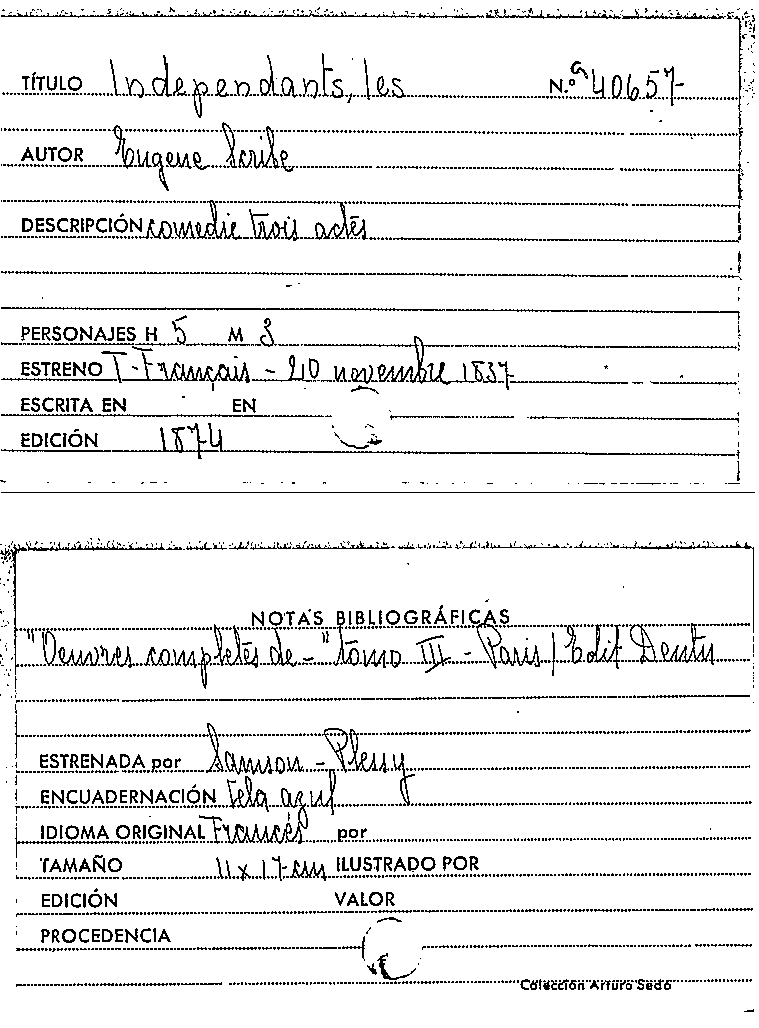 TÍTULO Independants, les N.º 40657
AUTOR Eugene Scribe
DESCRIPCIÓN comedie trois actes
PERSONAJES H 5 M 3
ESTRENO T. Français - 20 novembre 1837
ESCRITA EN EN
EDICIÓN 1874
NOTAS BIBLIOGRÁFICAS
"Oeuvres completes de -" tomo III - Paris / Edit Dentu
ESTRENADA por Samson - Plessy
ENCUADERNACIÓN tela azul
IDIOMA ORIGINAL Francés por
TAMAÑO 11 x 17 cm ILUSTRADO POR
EDICIÓN VALOR
PROCEDENCIA
Colección Arturo Sedó